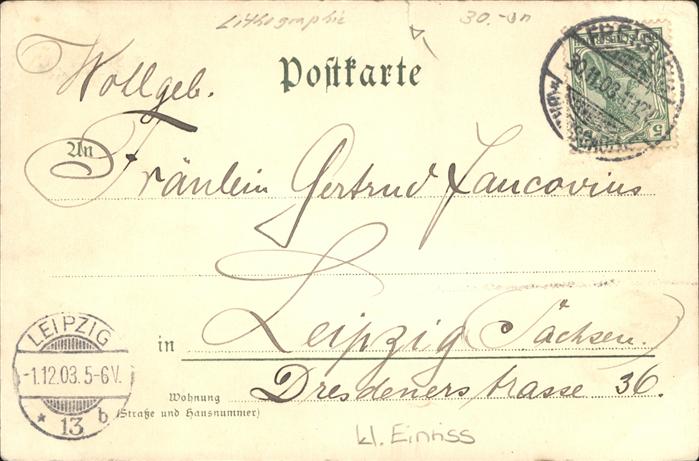 Lithographie 30.-
Wollgeb. Postkarte
An
Fräulein Gertrud Jancovius
in Leipzig (Sachsen.)
Wohnung Dresdenerstrasse 36.
(Straße und Hausnummer)
LEIPZIG
-1.12.03.5-6V.
* 13 b
30.11.03.
5
kl. Einriss